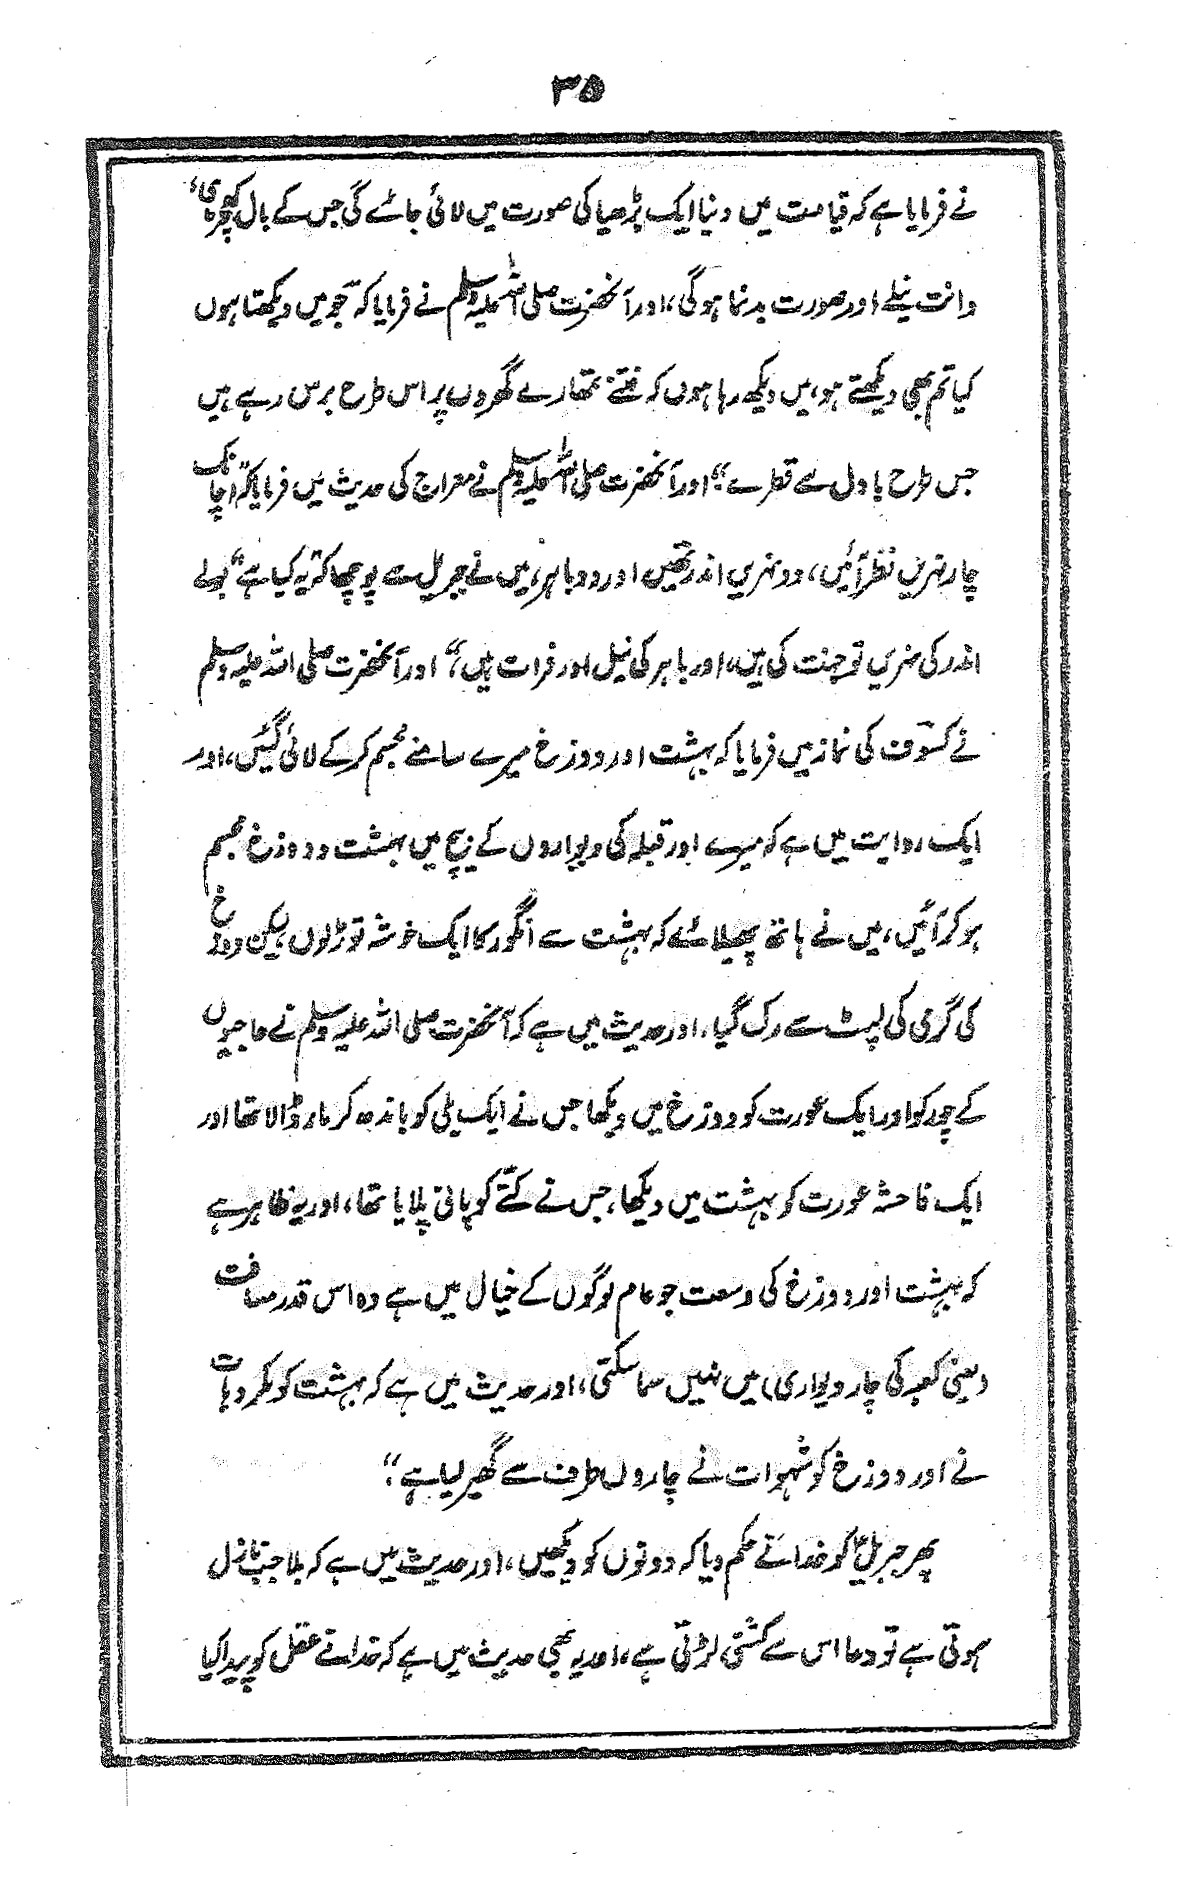 ۳۵
نے فرمایا ہے کہ قیامت میں دنیا ایک بڑھیا کی صورت میں لائی جائے گی جس کے بال کھچڑی،
دانت نیلے اور صورت بدنما ہوگی، اور آنحضرت صلی اللہ علیہ وسلم نے فرمایا کہ "جو میں دیکھتا ہوں
کیا تم بھی دیکھتے ہو، میں دیکھ رہا ہوں کہ فتنے تمھارے گھروں پر اس طرح برس رہے ہیں
جس طرح بادل سے قطرے"، اور آنحضرت صلی اللہ علیہ وسلم نے معراج کی حدیث میں فرمایا کہ "اچانک
چار نہریں نظر آئیں، دو نہریں اندر تھیں اور دو باہر، میں نے جبریل سے پوچھا کہ "یہ کیا ہے" بولے
اندر کی نہریں تو جنت کی ہیں، اور باہر کی نیل اور فرات ہیں،" اور آنحضرت صلی اللہ علیہ وسلم
نے کسوف کی نماز میں فرمایا کہ بہشت اور دوزخ میرے سامنے مجسم کر کے لائی گئیں، اور
ایک روایت میں ہے کہ میرے اور قبلہ کی دیواروں کے بیچ میں بہشت و دوزخ مجسم
ہو کر آئیں، میں نے ہاتھ پھیلائے کہ بہشت سے انگور کا ایک خوشہ توڑ لوں، لیکن دوزخ
کی گرمی کی لپٹ سے رک گیا، اور حدیث میں ہے کہ آنحضرت صلی اللہ علیہ وسلم نے حاجیوں
کے چور کو اور ایک عورت کو دوزخ میں دیکھا جس نے ایک بلی کو باندھ کر مار ڈالا تھا اور
ایک فاحشہ عورت کو بہشت میں دیکھا، جس نے کتے کو پانی پلایا تھا، اور یہ ظاہر ہے
کہ بہشت اور دوزخ کی وسعت جو عام لوگوں کے خیال میں ہے وہ اس قدر مسافت
(یعنی کعبہ کی چار دیواری) میں نہیں سما سکتی، اور حدیث میں ہے کہ بہشت کو مکروہات
نے اور دوزخ کو شہوات نے چاروں طرف سے گھیر لیا ہے"
پھر جبریل کو خدا نے حکم دیا کہ دونوں کو دیکھیں، اور حدیث میں ہے کہ بلا جب نازل
ہوتی ہے تو دعا اس سے کشتی لڑتی ہے، اور یہ بھی حدیث میں ہے کہ خدا نے عقل کو پیدا کیا